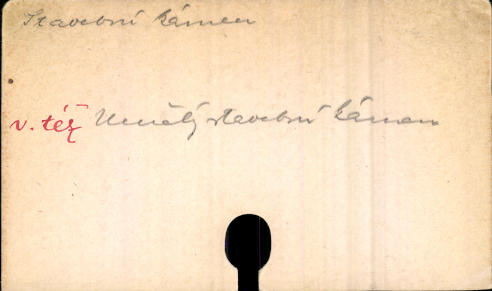 Stavební kámen
v. též Umělý stavební kámen